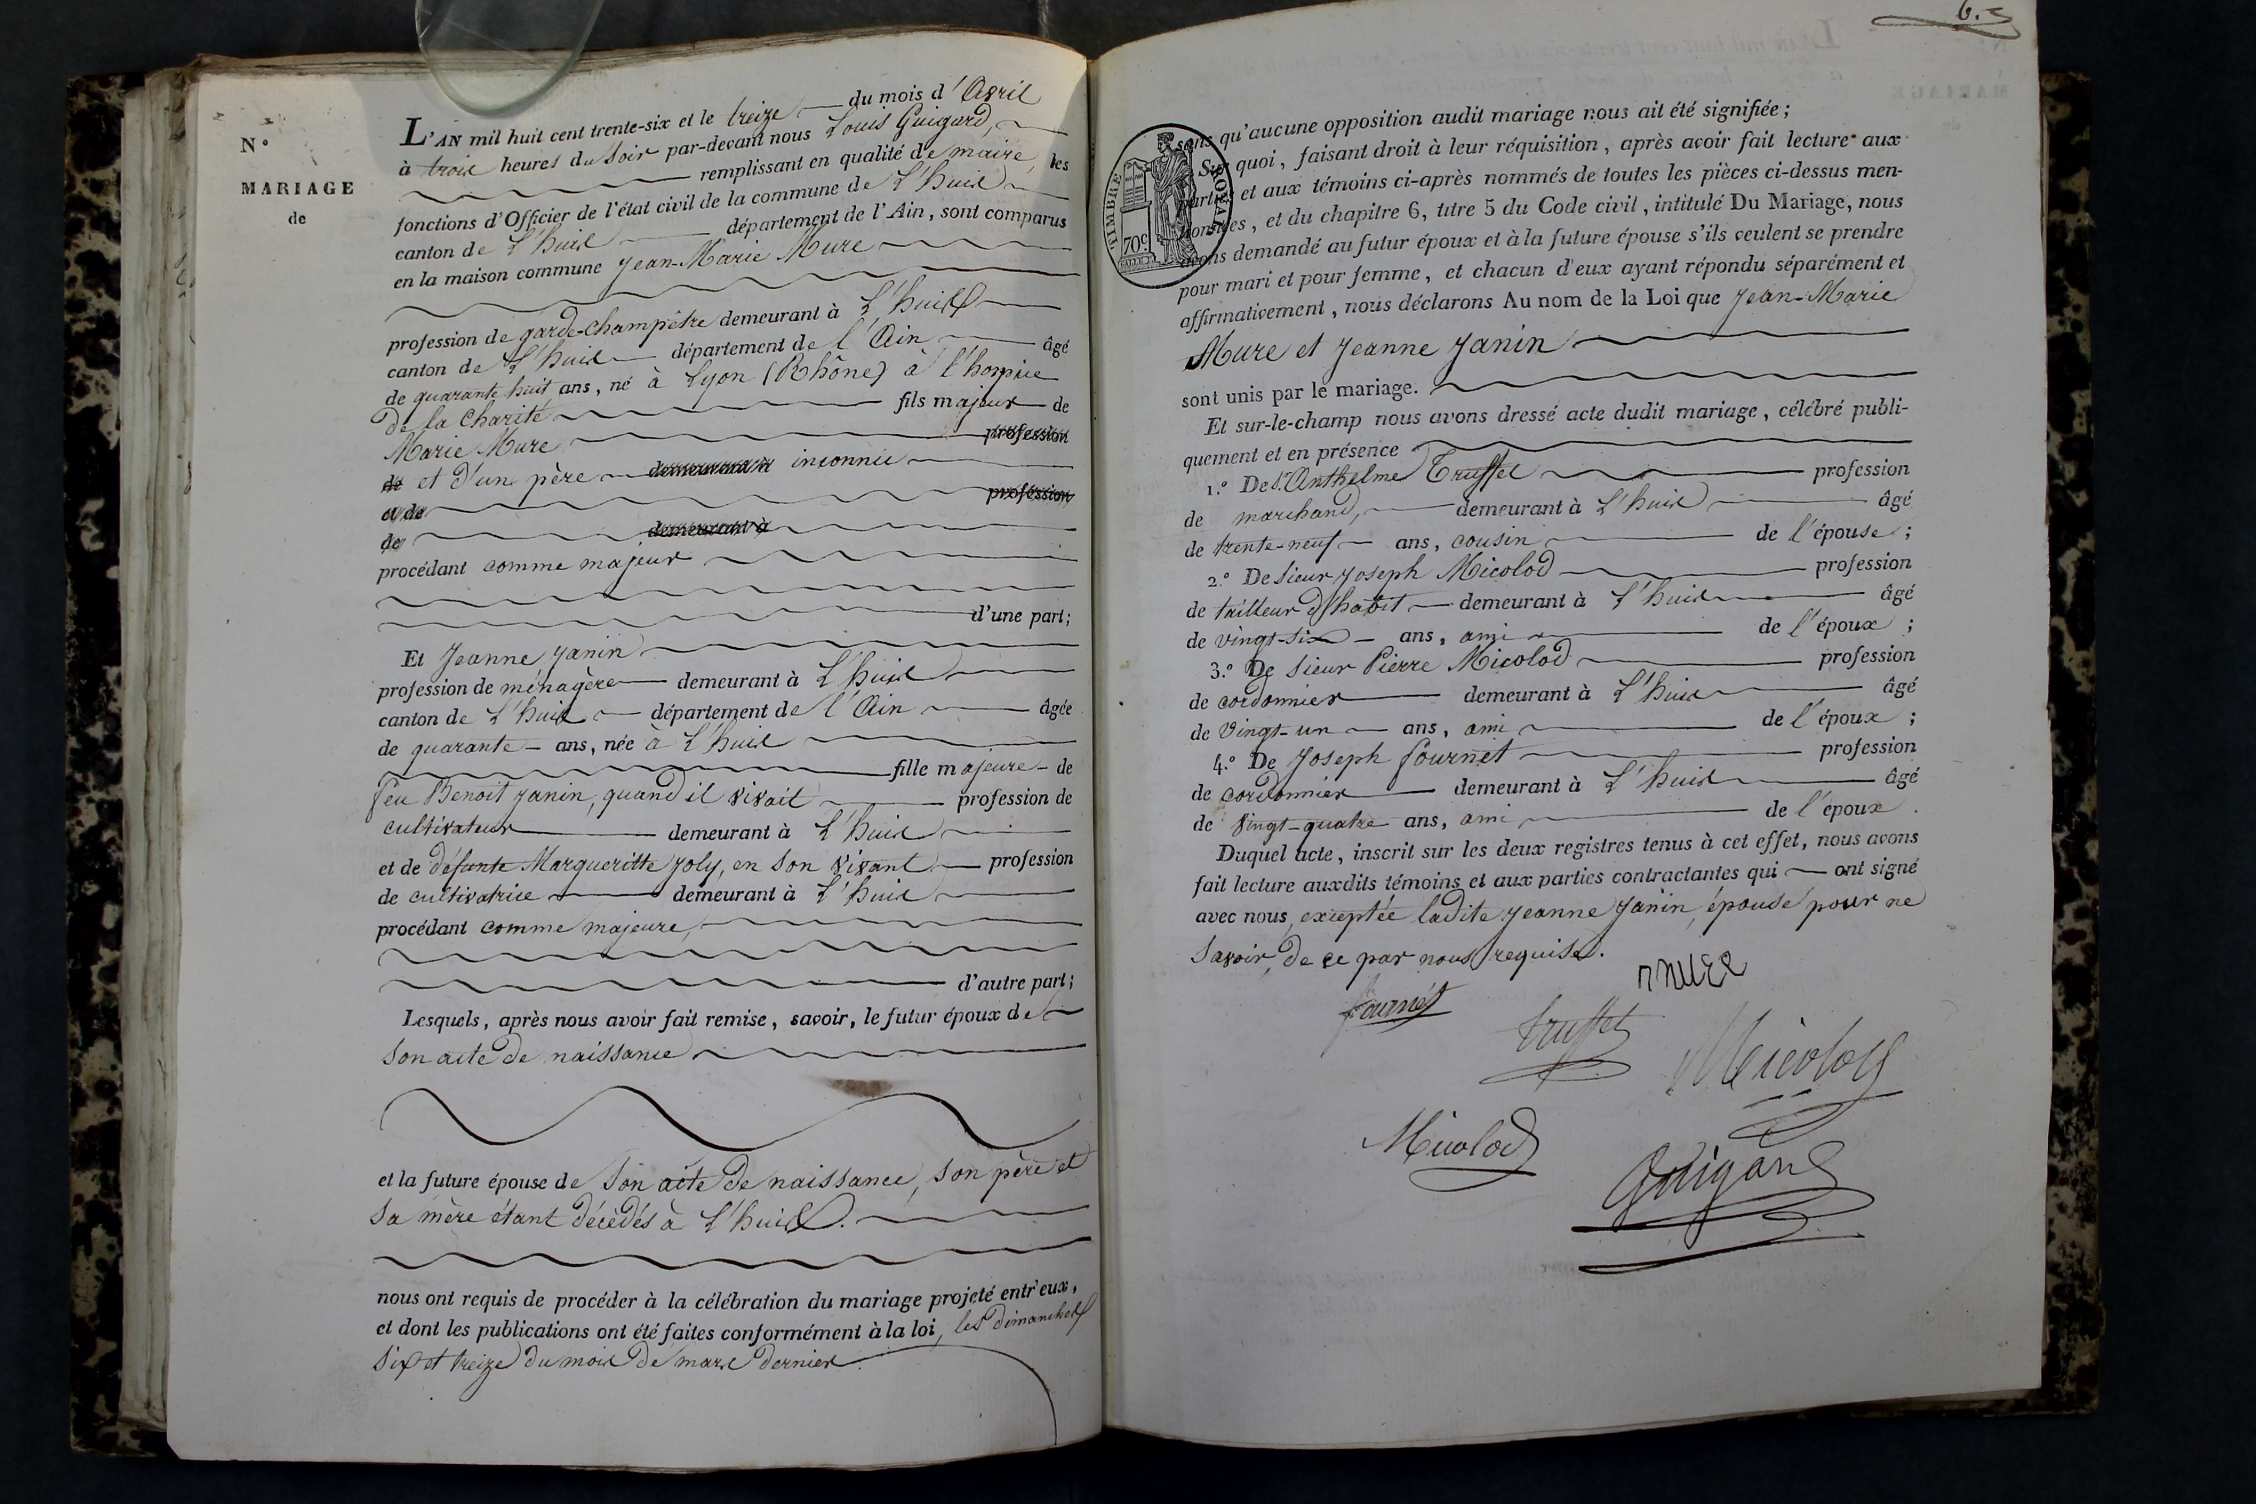 N.°
MARIAGE
de
L'AN mil huit cent trente-six et le treize du mois d'Avril
à trois heures du soir par-devant nous Louis Guigard,
remplissant en qualité de maire, les
fonctions d'Officier de l'état civil de la commune de L'huis
canton de L'huis département de l'Ain, sont comparus
en la maison commune Jean-Marie Mure
profession de garde-champêtre demeurant à L'huis
canton de L'huis département de l'Ain âgé
de quarante huit ans, né à Lyon (Rhône) à l'hospice
de la Charité fils majeur de
Marie Mure profession
de et d'un père demeurant à inconnu
et de profession
de demeurant à
procédant comme majeur
d'une part;
Et Jeanne Janin
profession de ménagère demeurant à L'huis
canton de L'huis département de l'Ain âgée
de quarante ans, née à L'huis
fille majeure de
feu Benoit Janin, quand il vivait profession de
cultivateur demeurant à L'huis
et de défunte Margueritte Joly, en son vivant profession
de cultivatrice demeurant à L'huis
procédant comme majeure,
d'autre part;
Lesquels, après nous avoir fait remise, savoir, le futur époux de
son acte de naissance
et la future épouse de son acte de naissance, son père et
sa mère étant décédés à L'huis.
nous ont requis de procéder à la célébration du mariage projeté entr'eux,
et dont les publications ont été faites conformément à la loi, les dimanches
six et treize du mois de mars dernier
6.
TIMBRE ROYAL
70c
sans qu'aucune opposition audit mariage nous ait été signifiée;
Sur quoi, faisant droit à leur réquisition, après avoir fait lecture aux
parties et aux témoins ci-après nommés de toutes les pièces ci-dessus men-
tionnées, et du chapitre 6, titre 5 du Code civil, intitulé Du Mariage, nous
avons demandé au futur époux et à la future épouse s'ils veulent se prendre
pour mari et pour femme, et chacun d'eux ayant répondu séparément et
affirmativement, nous déclarons Au nom de la Loi que Jean-Marie
Mure et Jeanne Janin
sont unis par le mariage.
Et sur-le-champ nous avons dressé acte dudit mariage, célébré publi-
quement et en présence
1.° De Sr Anthelme Truffet profession
de marchand, demeurant à L'huis âgé
de trente-neuf ans, cousin de l'épouse;
2.° De Sieur Joseph Micolod profession
de tailleur d'habit demeurant à L'huis âgé
de vingt-six ans, ami de l'époux;
3.° De Sieur Pierre Micolod profession
de cordonnier demeurant à L'huis âgé
de vingt-un ans, ami de l'époux;
4.° De Joseph fournet profession
de cordonnier demeurant à L'huis âgé
de vingt-quatre ans, ami de l'époux.
Duquel acte, inscrit sur les deux registres tenus à cet effet, nous avons
fait lecture auxdits témoins et aux parties contractantes qui ont signé
avec nous, exceptée ladite Jeanne Janin, épouse pour ne
savoir, de ce par nous requise.
fournet
truffet
Micolod
Micolod
Guigard